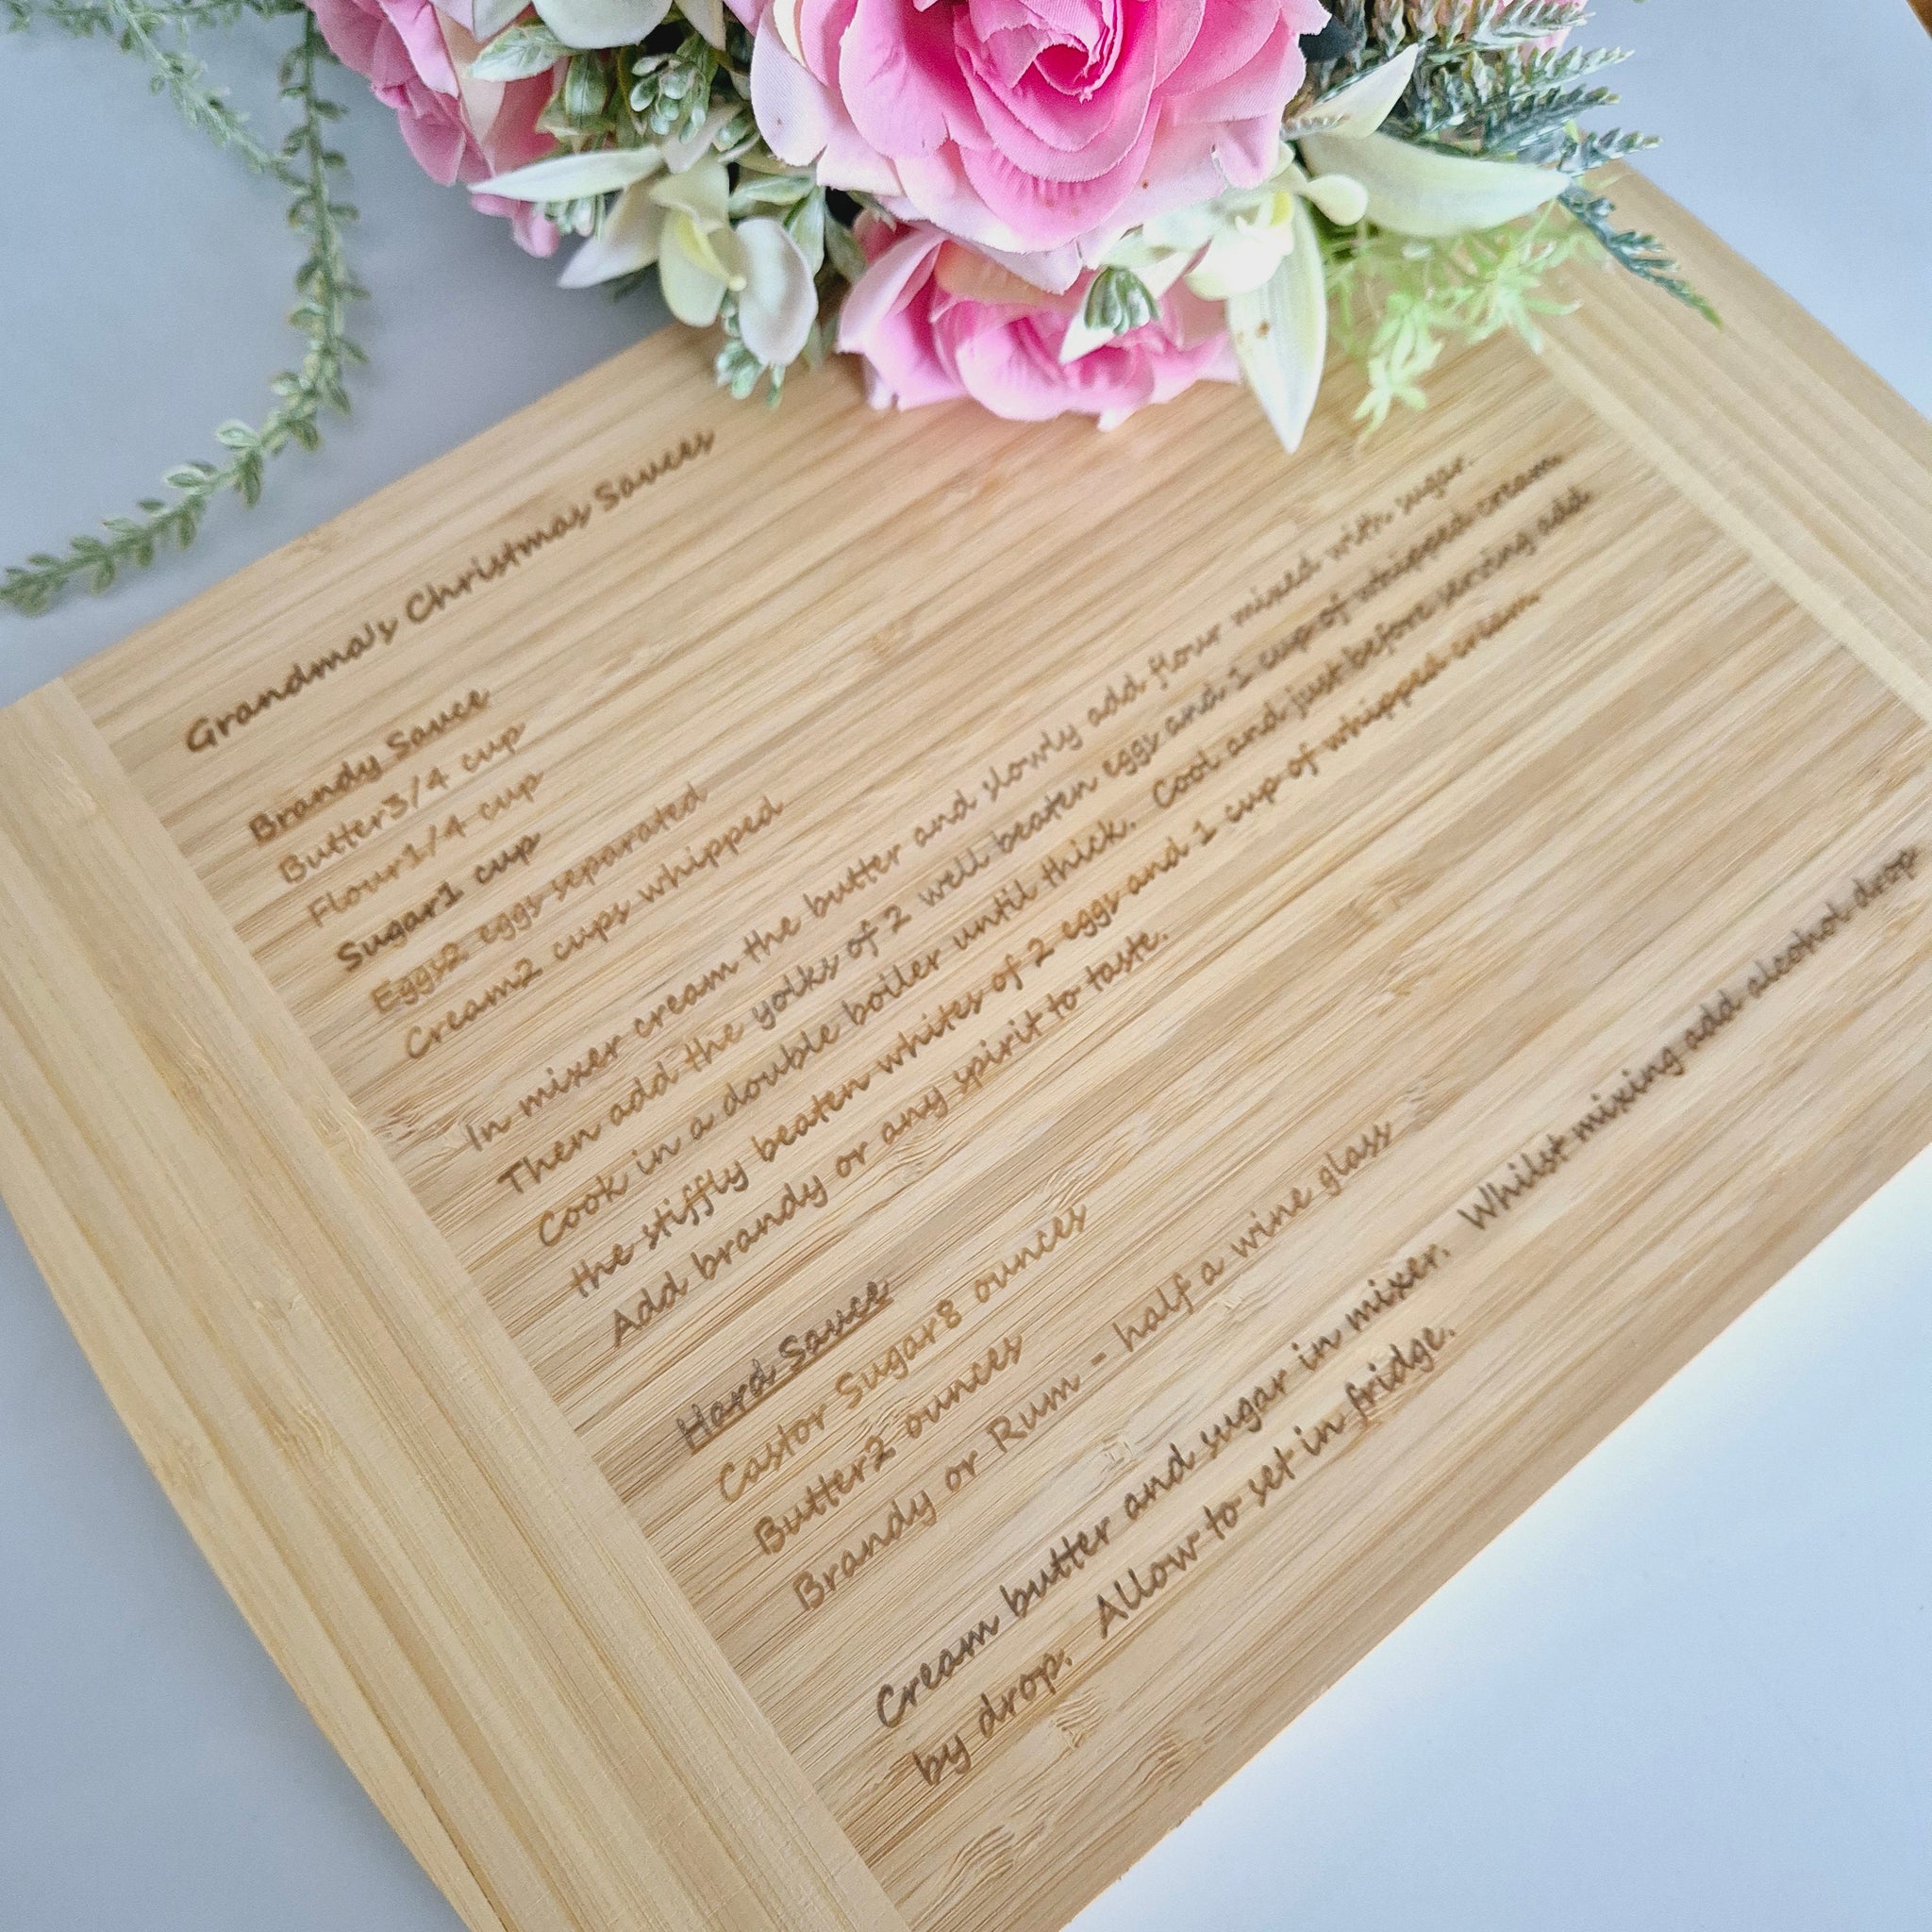 Grandma's Christmas Sauces
Brandy Sauce
Butter3/4 cup
Flour1/4 cup
Sugar1 cup
Eggs2 eggs separated
Cream2 cups whipped
In mixer cream the butter and slowly add flour mixed with sugar.
Then add the yolks of 2 well beaten eggs and 1 cup of whipped cream.
Cook in a double boiler until thick. Cool and just before serving add
the stiffly beaten whites of 2 eggs and 1 cup of whipped cream.
Add brandy or any spirit to taste.
Hard Sauce
Castor Sugar8 ounces
Butter2 ounces
Brandy or Rum - half a wine glass
Cream butter and sugar in mixer. Whilst mixing add alcohol drop
by drop. Allow to set in fridge.